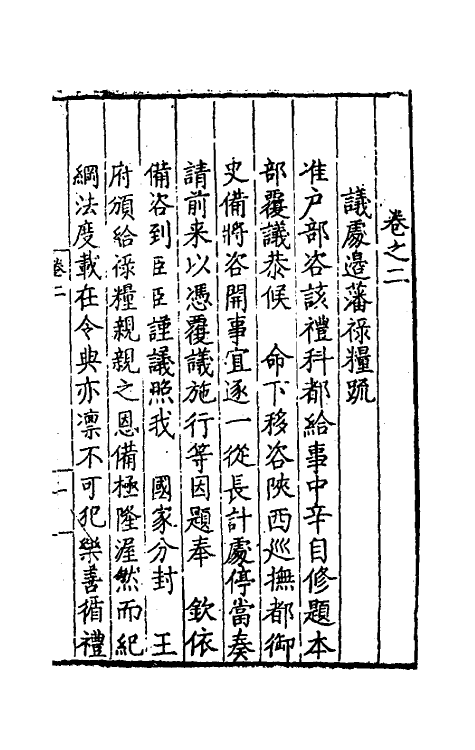 卷之二
議處邊藩祿糧疏
准户部咨該禮科都給事中辛自修題本
部覆議恭候　命下移咨陝西巡撫都御
史備將咨開事宜逐一從長計處停當奏
請前来以憑覆議施行等因題奉　欽依
備咨到臣臣謹議照我　國家分封　王
府頒給祿糧親親之恩備極隆渥然而紀
綱法度載在令典亦凛不可犯樂善循禮
卷二
一